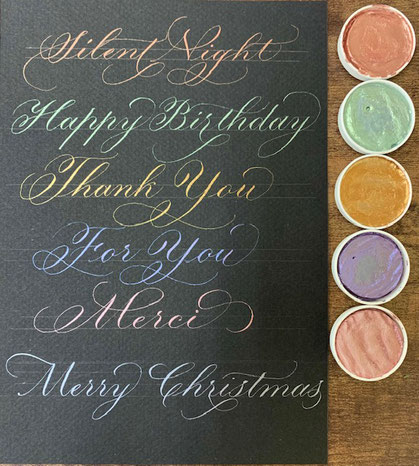 Silent Night
Happy Birthday
Thank You
For You
Merci
Merry Christmas